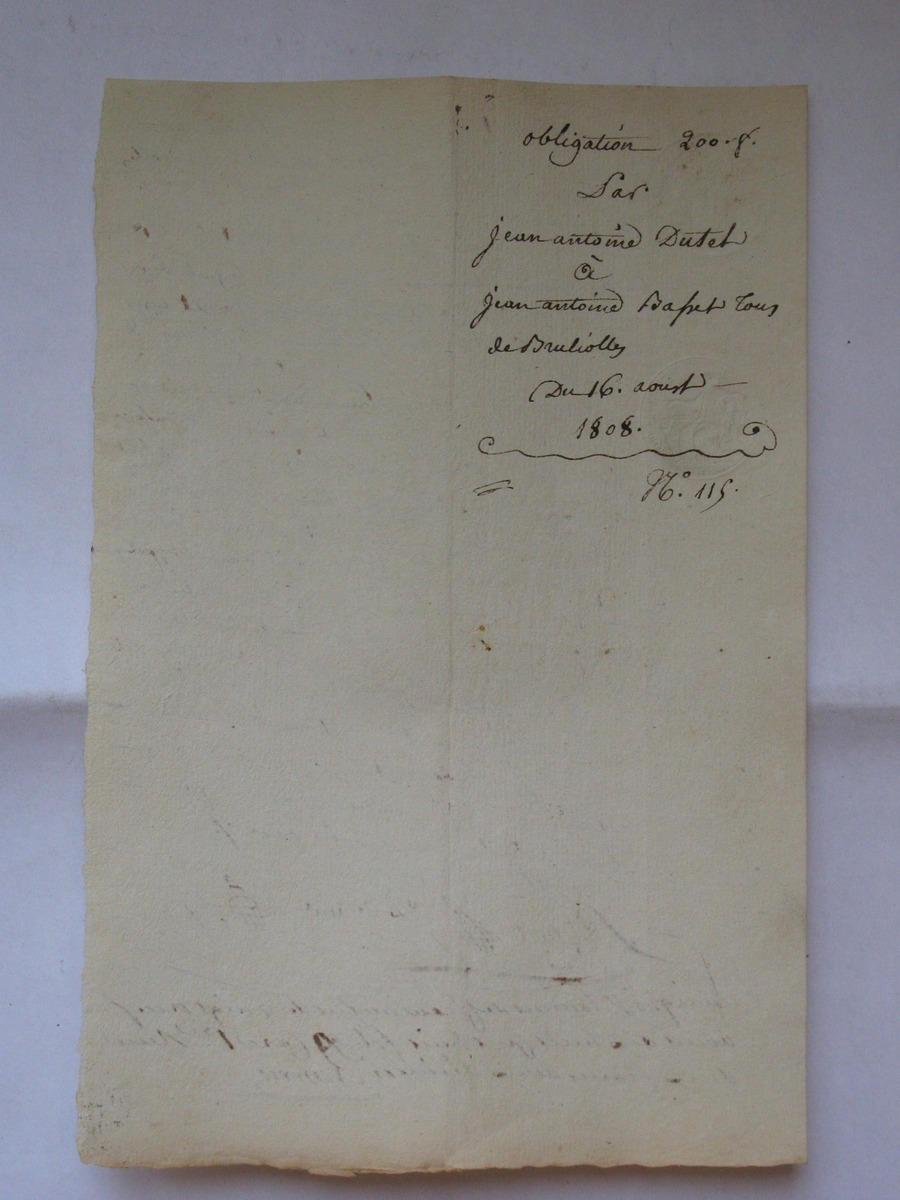 obligation 200.f.
Par
jean antoine Dutel
à
jean antoine Basset Tous
de Bruliolles
Du 16. aoust
1808.
N.° 115.